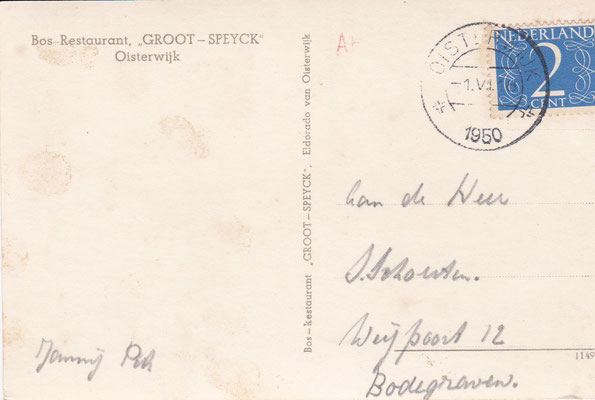 Bos-Restaurant, „GROOT-SPEYCK"
Oisterwijk
A
Bos-Restaurant „GROOT-SPEYCK", Eldorado van Oisterwijk
OISTERWIJK
1950
NEDERLAND
2
CENT
Aan de Heer
S. Schouten.
Weijpoort 12
Bodegraven.
1149
Janny